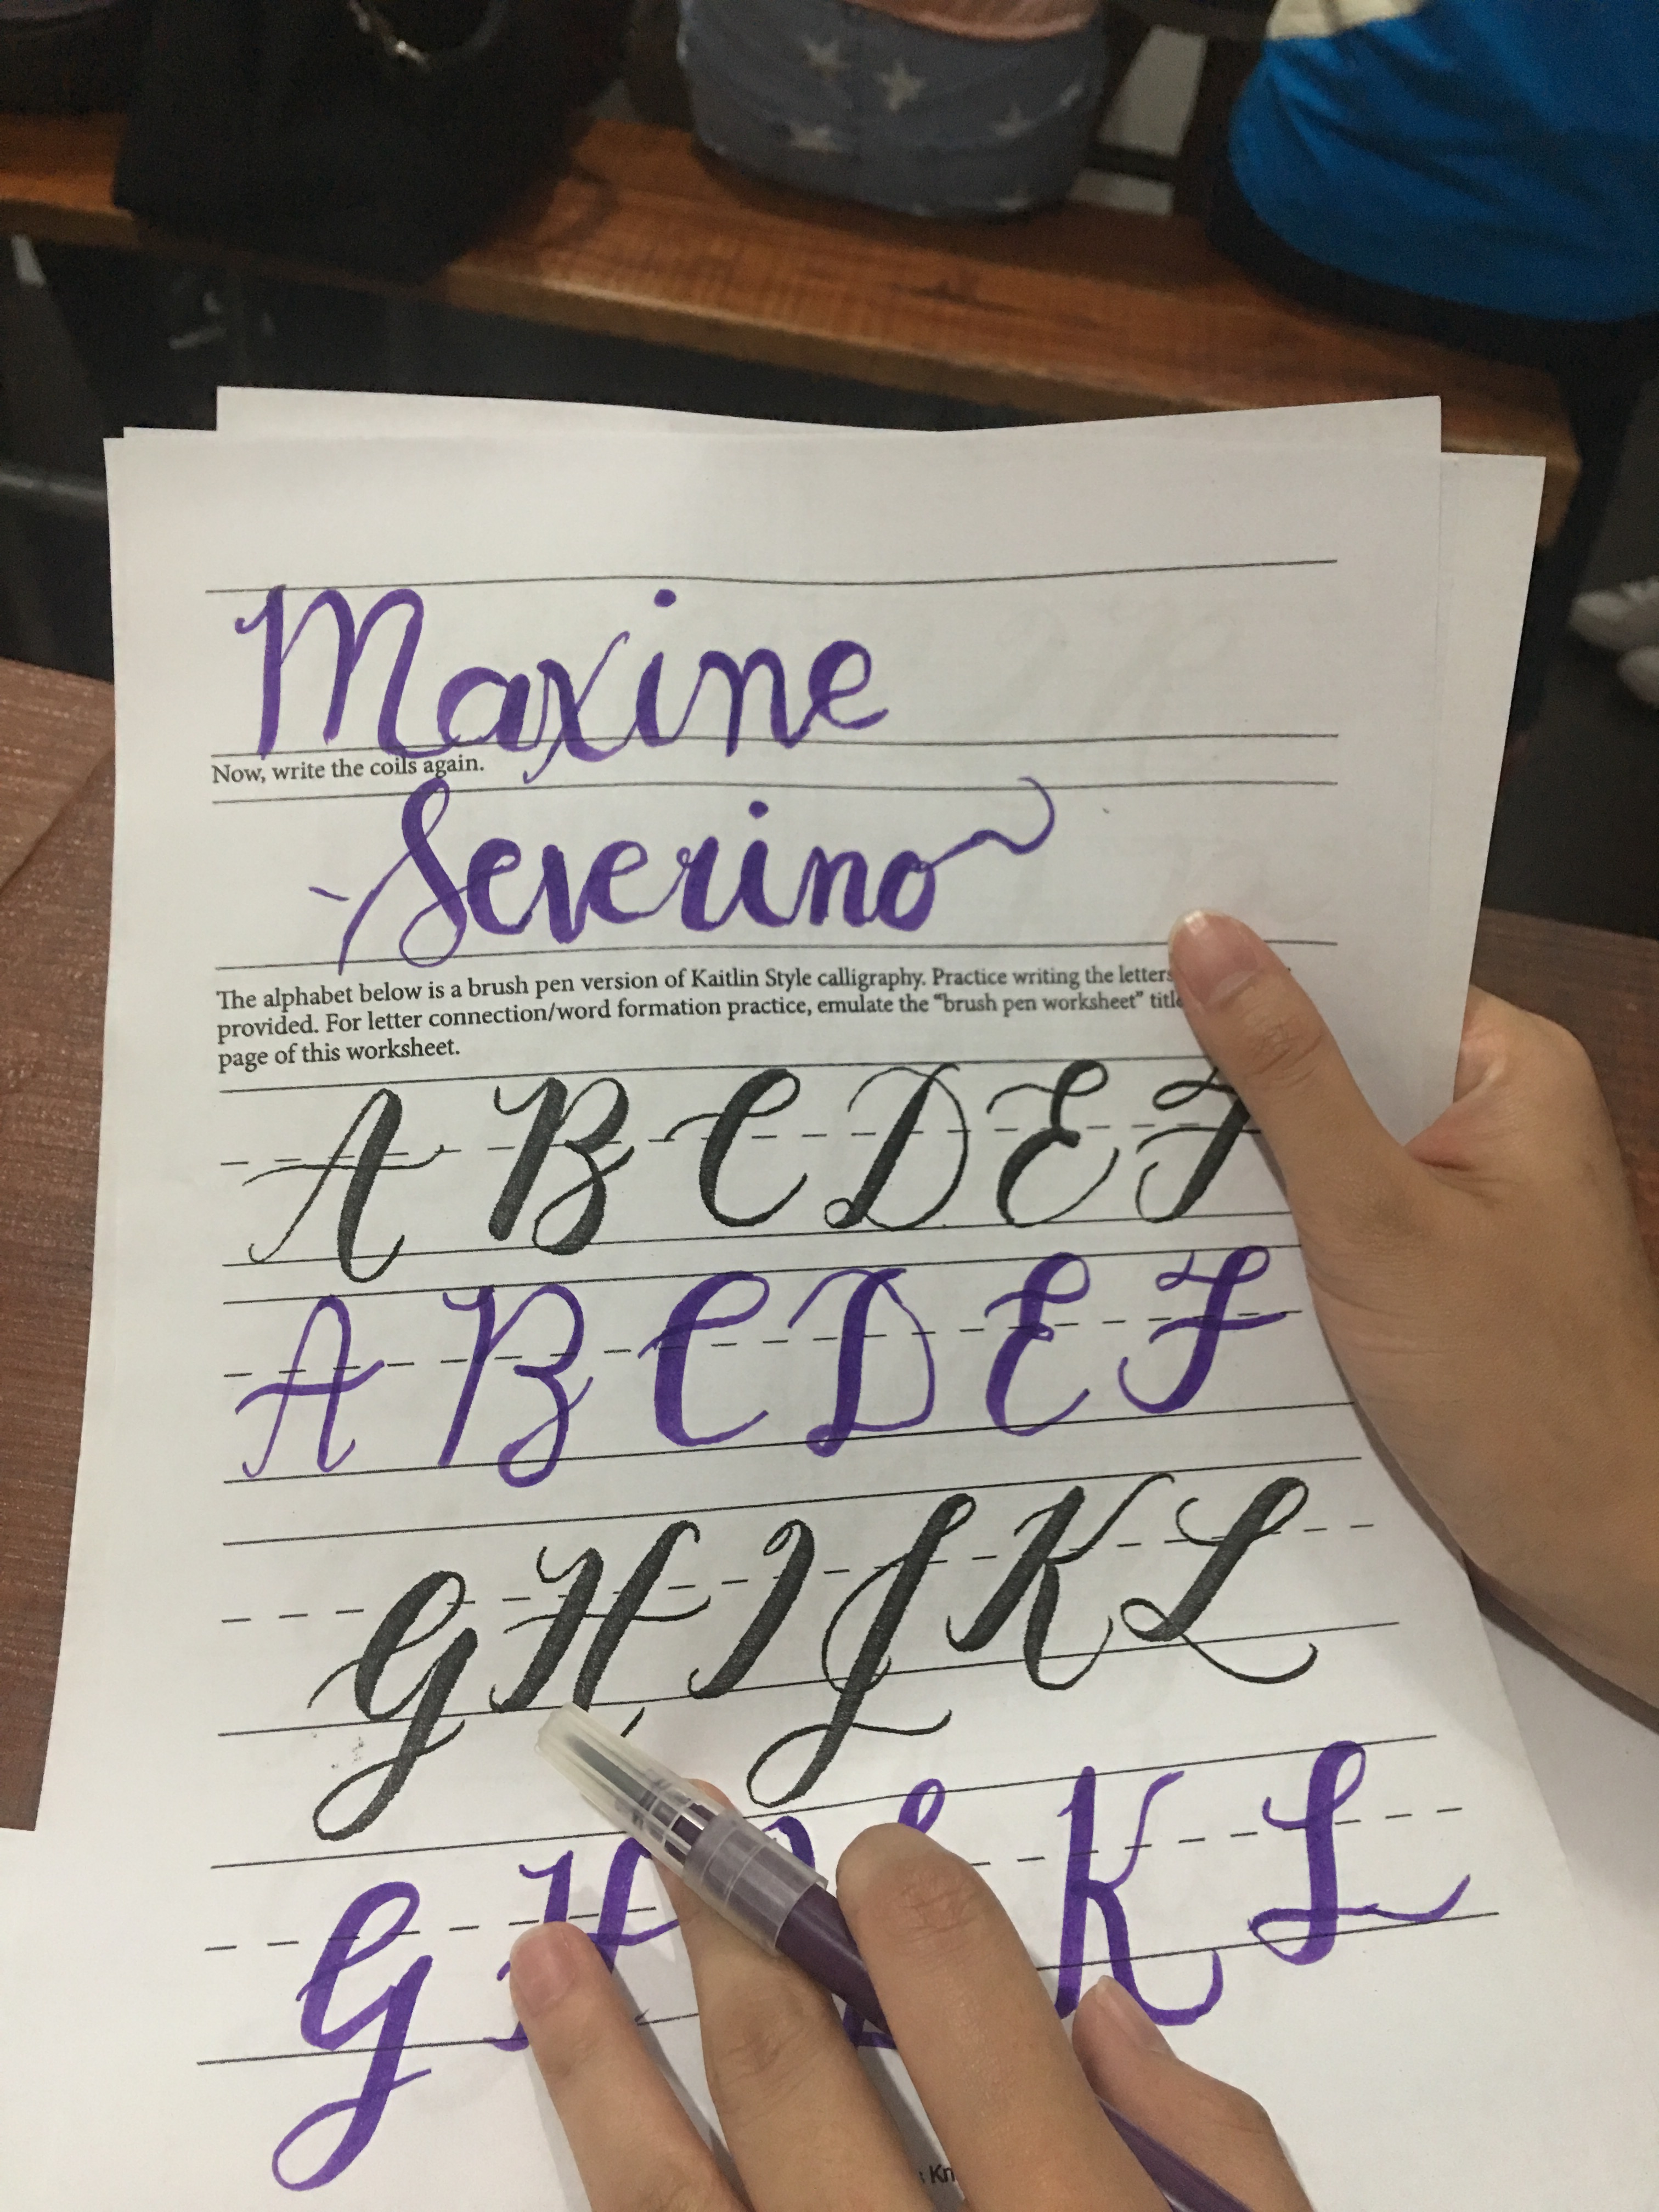 Maxine
Now, write the coils again.
Severino
The alphabet below is a brush pen version of Kaitlin Style calligraphy. Practice writing the letters
provided. For letter connection/word formation practice, emulate the “brush pen worksheet” title
page of this worksheet.
A B C D E F
A B C D E F
G H I J K L
G H K L